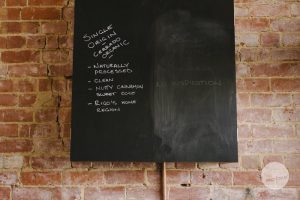 SINGLE
ORIGIN
CERRADO
ORGANIC
- NATURALLY
PROCESSED
- CLEAN
- NUTTY CINNAMON
SWEET COCO
- RIGO'S HOME
REGION